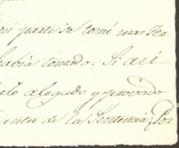 parte se tomó mas
habia tomado. Si asi
alo alegado y provado
antes de la Sentencia; Por